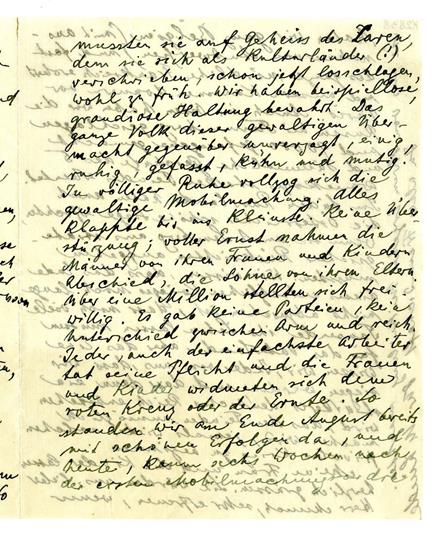 mussten sie auf Geheiss des Zaren,
dem sie sich als Kulturländer (!)
verschrieben, schon jetzt losschlagen,
wohl zu früh. Wir haben beispiellose,
grandiose Haltung bewahrt. Das
ganze Volk dieser gewaltigen Über-
macht gegenüber unverzagt, einig,
ruhig, gefasst, kühn und mutig.
In völliger Ruhe vollzog sich die
gewaltige Mobilmachung, alles
klappte bis ins Kleinste. Keine Über-
stürzung, voller Ernst nahmen die
Männer von ihren Frauen und Kindern
Abschied, die Söhne von ihren Eltern.
Über eine Million stellten sich frei-
willig. Es gab keine Parteien, kein
Unterschied zwischen Arm und reich.
Jeder, auch der einfachste Arbeiter
tat seine Pflicht und die Frauen
und Kinder widmeten sich dem
roten Kreuz oder der Ernte. So
standen wir am Ende August bereits
mit schönen Erfolgen da, und
heute, kaum sechs Wochen nach
der ersten Mobilmachungsorder